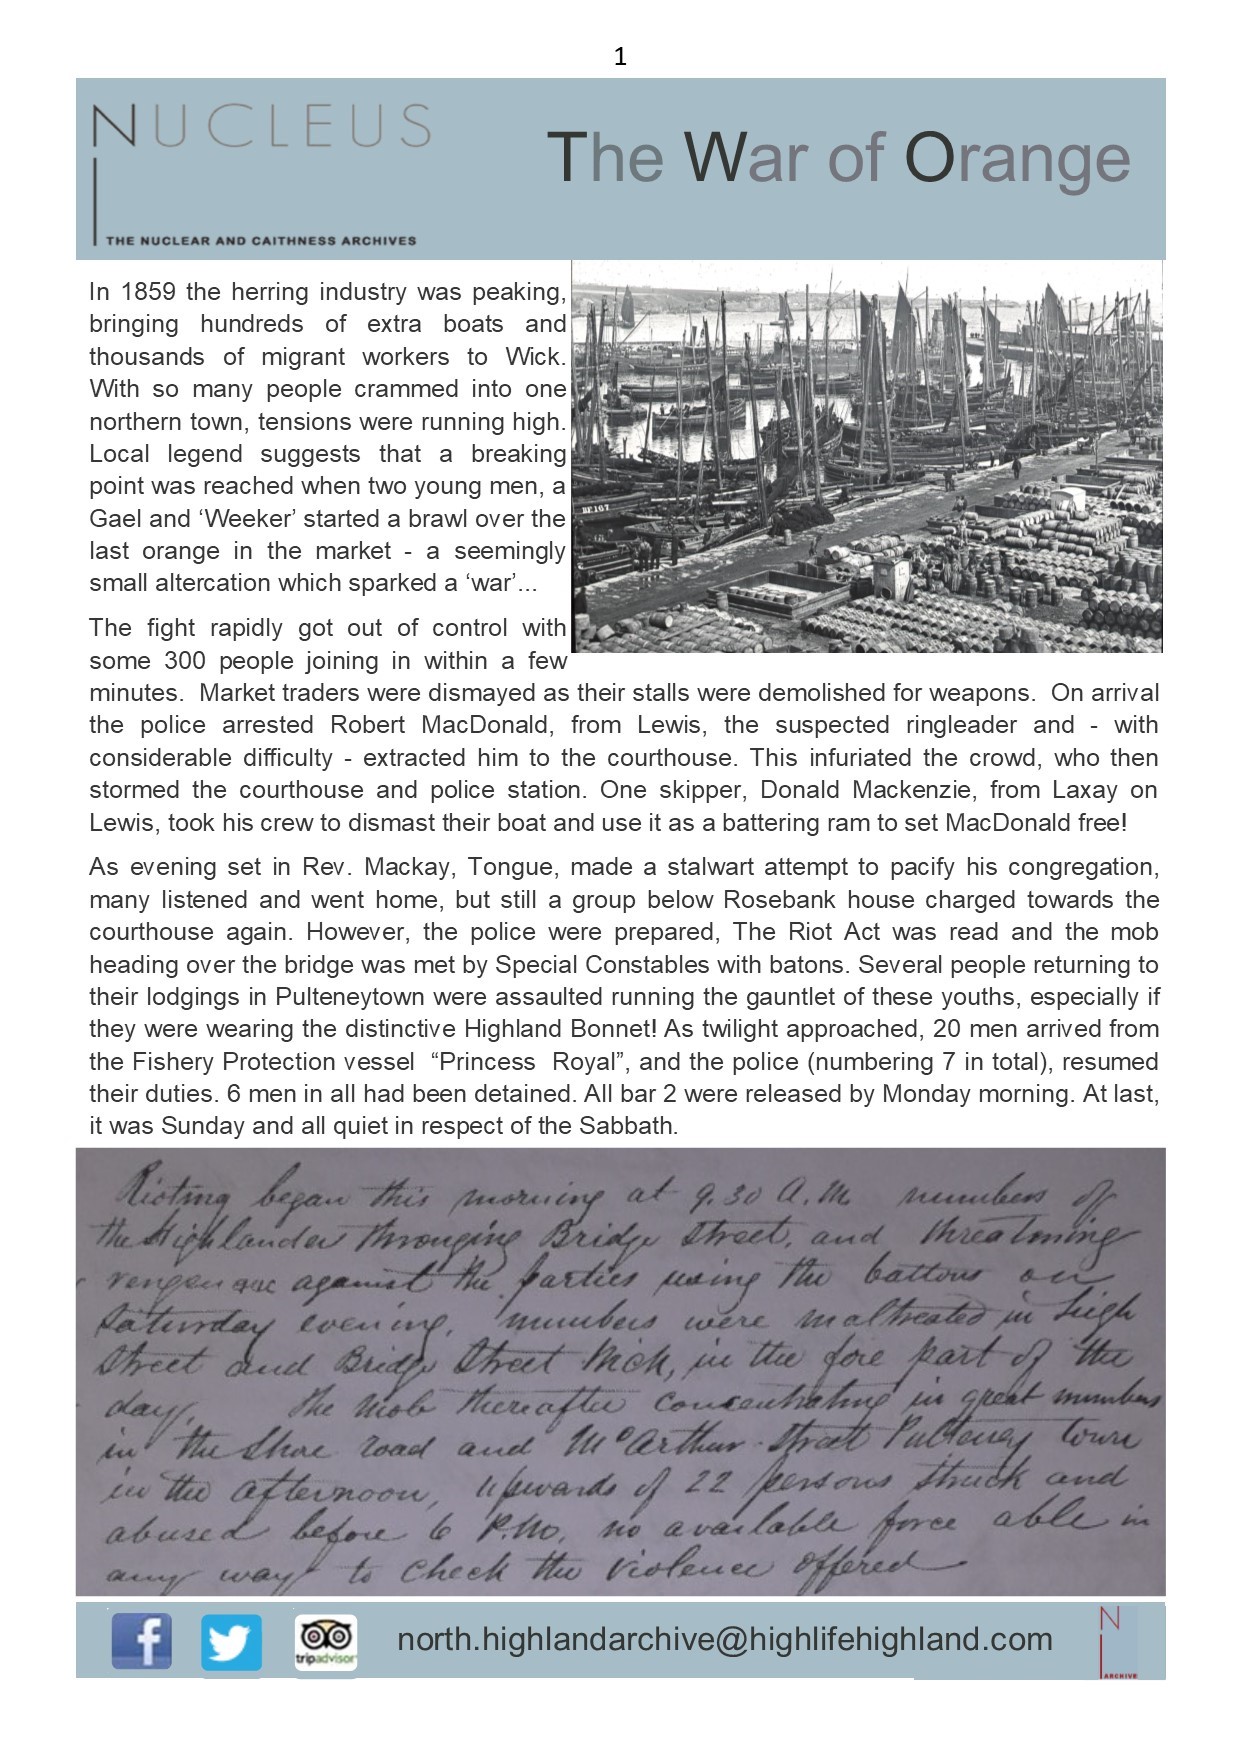 1
NUCLEUS
THE NUCLEAR AND CAITHNESS ARCHIVES
The War of Orange
In 1859 the herring industry was peaking,
bringing hundreds of extra boats and
thousands of migrant workers to Wick.
With so many people crammed into one
northern town, tensions were running high.
Local legend suggests that a breaking
point was reached when two young men, a
Gael and ‘Weeker’ started a brawl over the
last orange in the market - a seemingly
small altercation which sparked a ‘war’...
BF 167
The fight rapidly got out of control with
some 300 people joining in within a few
minutes. Market traders were dismayed as their stalls were demolished for weapons. On arrival
the police arrested Robert MacDonald, from Lewis, the suspected ringleader and - with
considerable difficulty - extracted him to the courthouse. This infuriated the crowd, who then
stormed the courthouse and police station. One skipper, Donald Mackenzie, from Laxay on
Lewis, took his crew to dismast their boat and use it as a battering ram to set MacDonald free!
As evening set in Rev. Mackay, Tongue, made a stalwart attempt to pacify his congregation,
many listened and went home, but still a group below Rosebank house charged towards the
courthouse again. However, the police were prepared, The Riot Act was read and the mob
heading over the bridge was met by Special Constables with batons. Several people returning to
their lodgings in Pulteneytown were assaulted running the gauntlet of these youths, especially if
they were wearing the distinctive Highland Bonnet! As twilight approached, 20 men arrived from
the Fishery Protection vessel “Princess Royal”, and the police (numbering 7 in total), resumed
their duties. 6 men in all had been detained. All bar 2 were released by Monday morning. At last,
it was Sunday and all quiet in respect of the Sabbath.
Rioting began this morning at 9.30 A.M numbers of
the Highlander thronging Bridge Street, and threatening
vengeance against the parties using the battons on
Saturday evening, numbers were maltreated in High
Street and Bridge Street Wick, in the fore part of the
day, the Mob thereafter concentrating in great numbers
in the Shore road and McArthur Street Pulteney town
in the afternoon, upwards of 22 persons struck and
abused before 6 P.M. no available force able in
any way to check the violence offered
f
tripadvisor
north.highlandarchive@highlifehighland.com
N
ARCHIVE